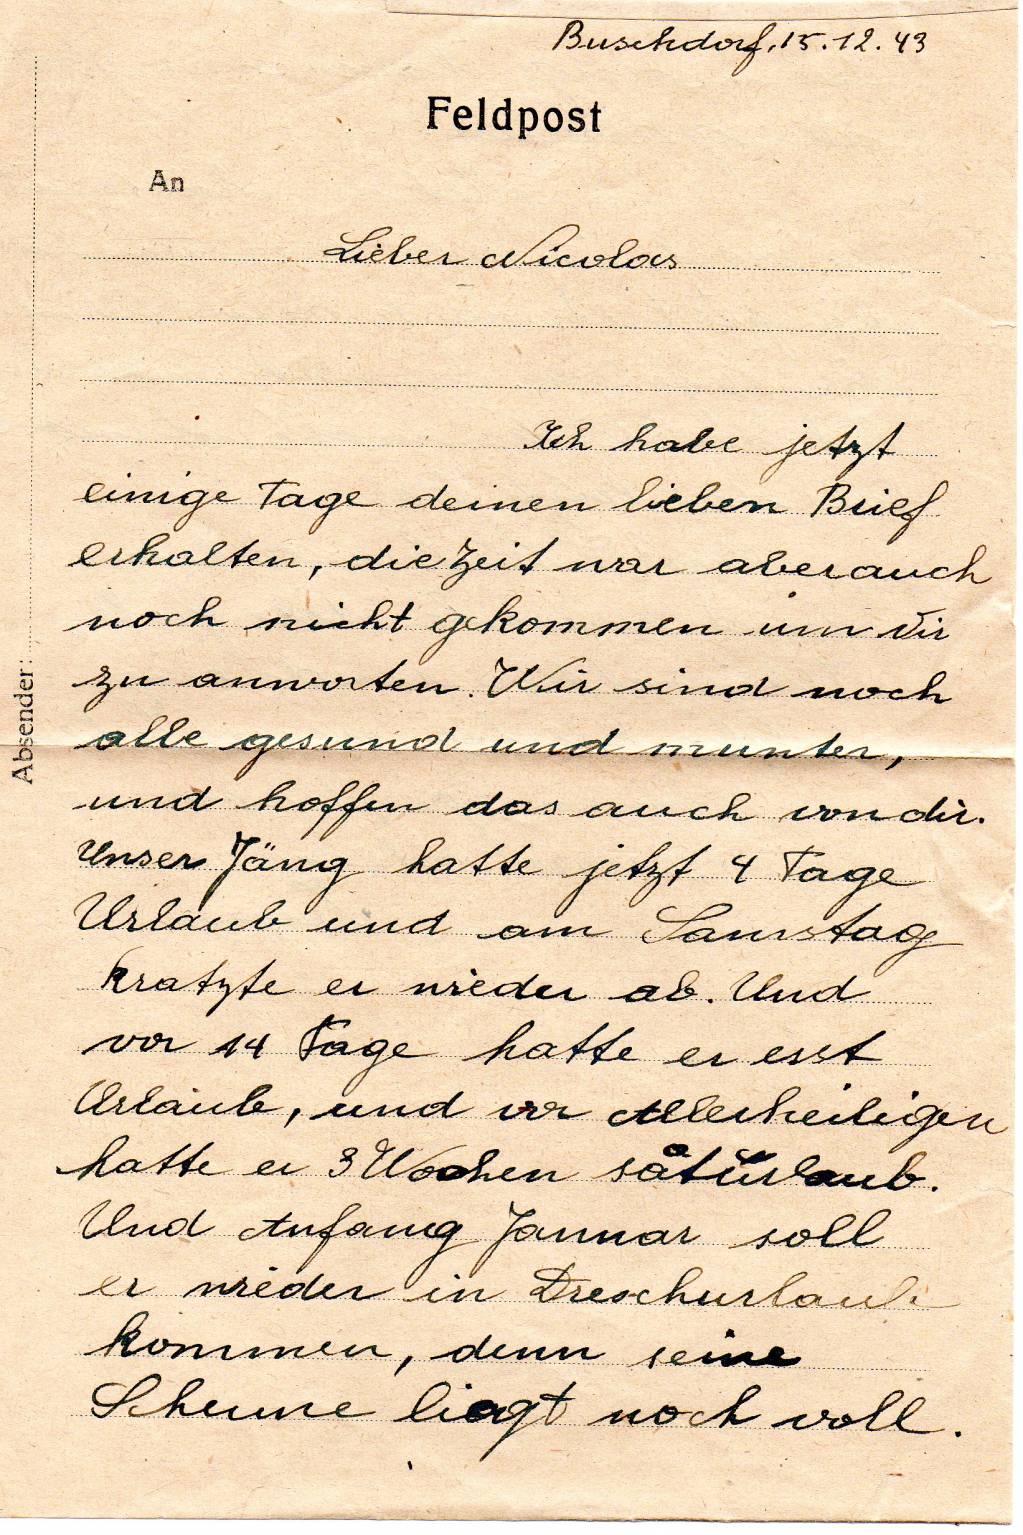 Buschdorf, 15.12.43
Feldpost
An
Lieber Nicolas
Ich habe jetzt
einige Tage deinen lieben Brief
erhalten, die Zeit war aber auch
noch nicht gekommen um dir
zu anworten. Wir sind noch
alle gesund und munter,
und hoffen das auch von dir.
Unser Jäng hatte jetzt 4 Tage
Urlaub und am Samstag
kratzte er wieder ab. Und
vor 14 Tage hatte er erst
Urlaub, und vor Allerheiligen
hatte er 3 Wochen såturlaub.
Und Anfang Januar soll
er wieder in Dreschurlaub
kommen, denn seine
Scheune liegt noch voll.
Absender: